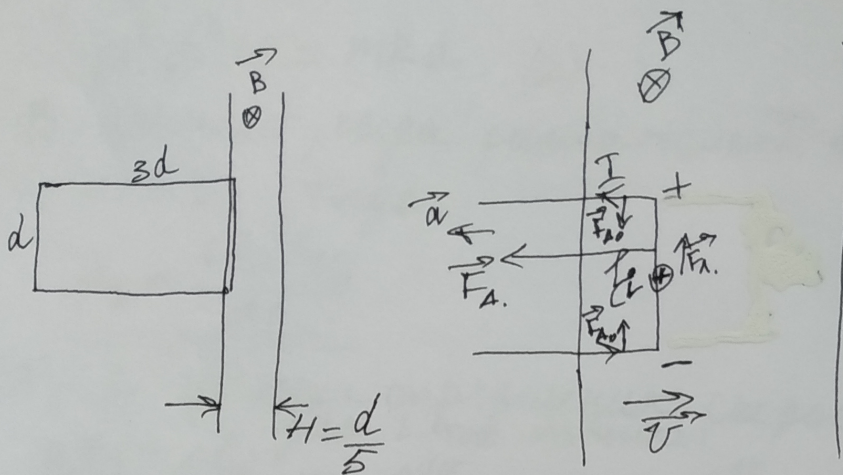 B
3d
d
H = d/5
B
I
+
a
F_A0
F_A.
F_Л.
F_A0
−
v